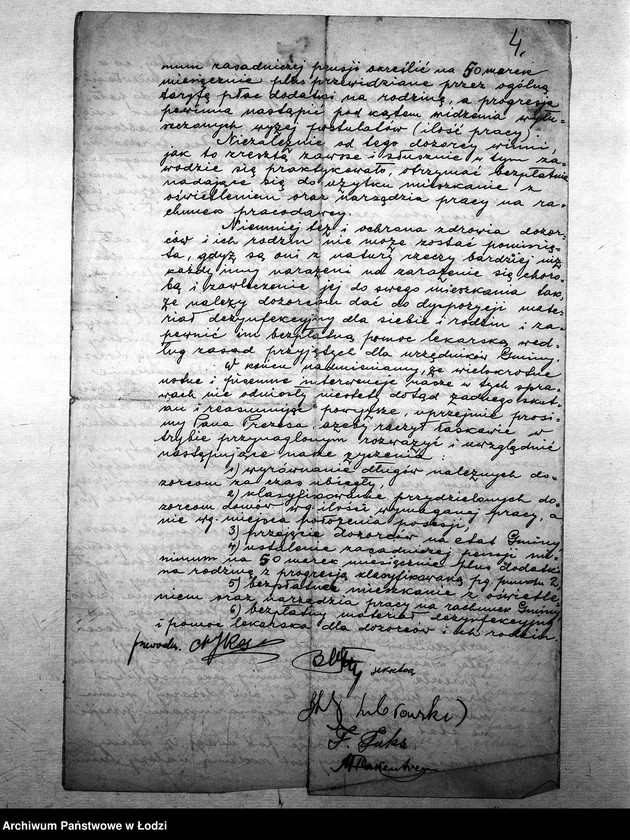 4.
mum zasadniczej pensji określić na 50 marek
miesięcznie plus przewidziane przez ogólną
taryfę płac dodatki na rodzinę, a progresja
powinna nastąpić pod kątem widzenia wyłu-
szczonych wyżej postulatów (ilość pracy).
Niezależnie od tego dozorcy winni,
jak to zresztą zawsze i słusznie w tym za-
wodzie się praktykowało, otrzymać bezpłatnie
nadające się do użytku mieszkanie z
oświetleniem oraz narzędzia pracy na ra-
chunek pracodawcy.
Niemniej też i ochrona zdrowia dozor-
ców i ich rodzin nie może zostać pominię-
ta, gdyż są oni z natury rzeczy bardziej niż
każdy inny narażeni na zarażenie się choro-
bą i zawleczenie jej do swego mieszkania tak,
że należy dozorcom dać do dyspozycji mate-
riał dezynfekcyjny dla siebie i rodzin i za-
pewnić im bezpłatną pomoc lekarską wed-
ług zasad przyjętych dla urzędników Gminy.
W końcu nadmieniamy, że wielokrotne
ustne i pisemne interwencje nasze w tych spra-
wach nie odniosły niestety dotąd żadnego skut-
ku i reasumując powyższe, uprzejmie prosi-
my Pana Prezesa ażeby raczył łaskawie w
trybie przynaglonym rozważyć i uwzględnić
następujące nasze życzenia:
1) wyrównanie długów należnych do-
zorcom za czas ubiegły,
2) klasyfikowanie przydzielonych do-
zorcom domów wg. ilości wymaganej pracy, a
nie wg. miejsca położenia posesji,
3) przejęcie dozorców na etat Gminy,
4) ustalenie zasadniczej pensji mi-
nimum na 50 marek miesięcznie plus dodatki
na rodzinę z progresją klasyfikowaną pg. punktu 2,
5) bezpłatne mieszkanie z oświetle-
niem oraz narzędzia pracy na rachunek Gminy,
6) bezpłatny materiał dezynfekcyjny
i pomoc lekarska dla dozorców i ich rodzin.
przewodn.
sekretarz
F. Fuks
Archiwum Państwowe w Łodzi